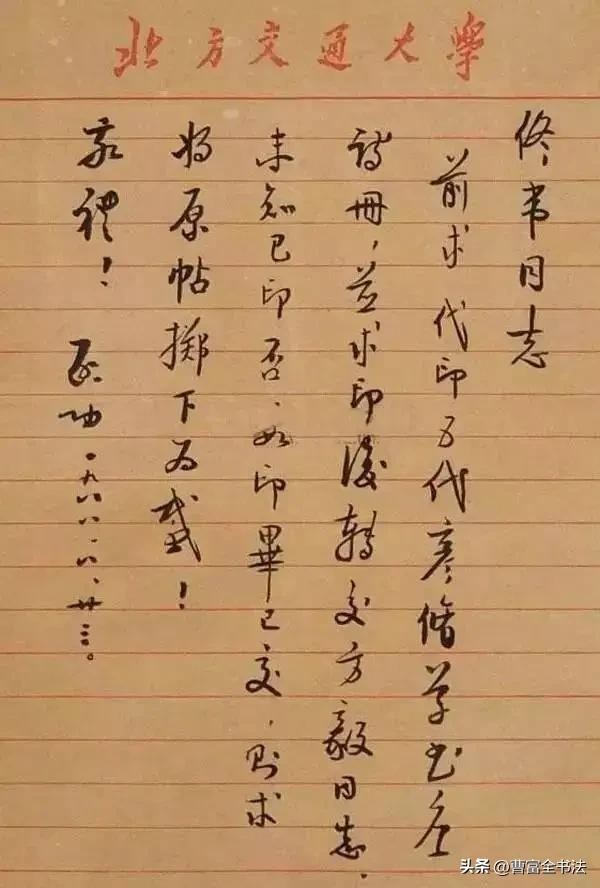 北方交通大學
佟韦同志
前求 代印五代彦脩草书
诗册，並求印後转交方毅同志。
未知已印否，如印畢已交，则求
将原帖掷下为感！
敬礼！
启功 一九八八.八、廿三。
头条 @曹富全书法